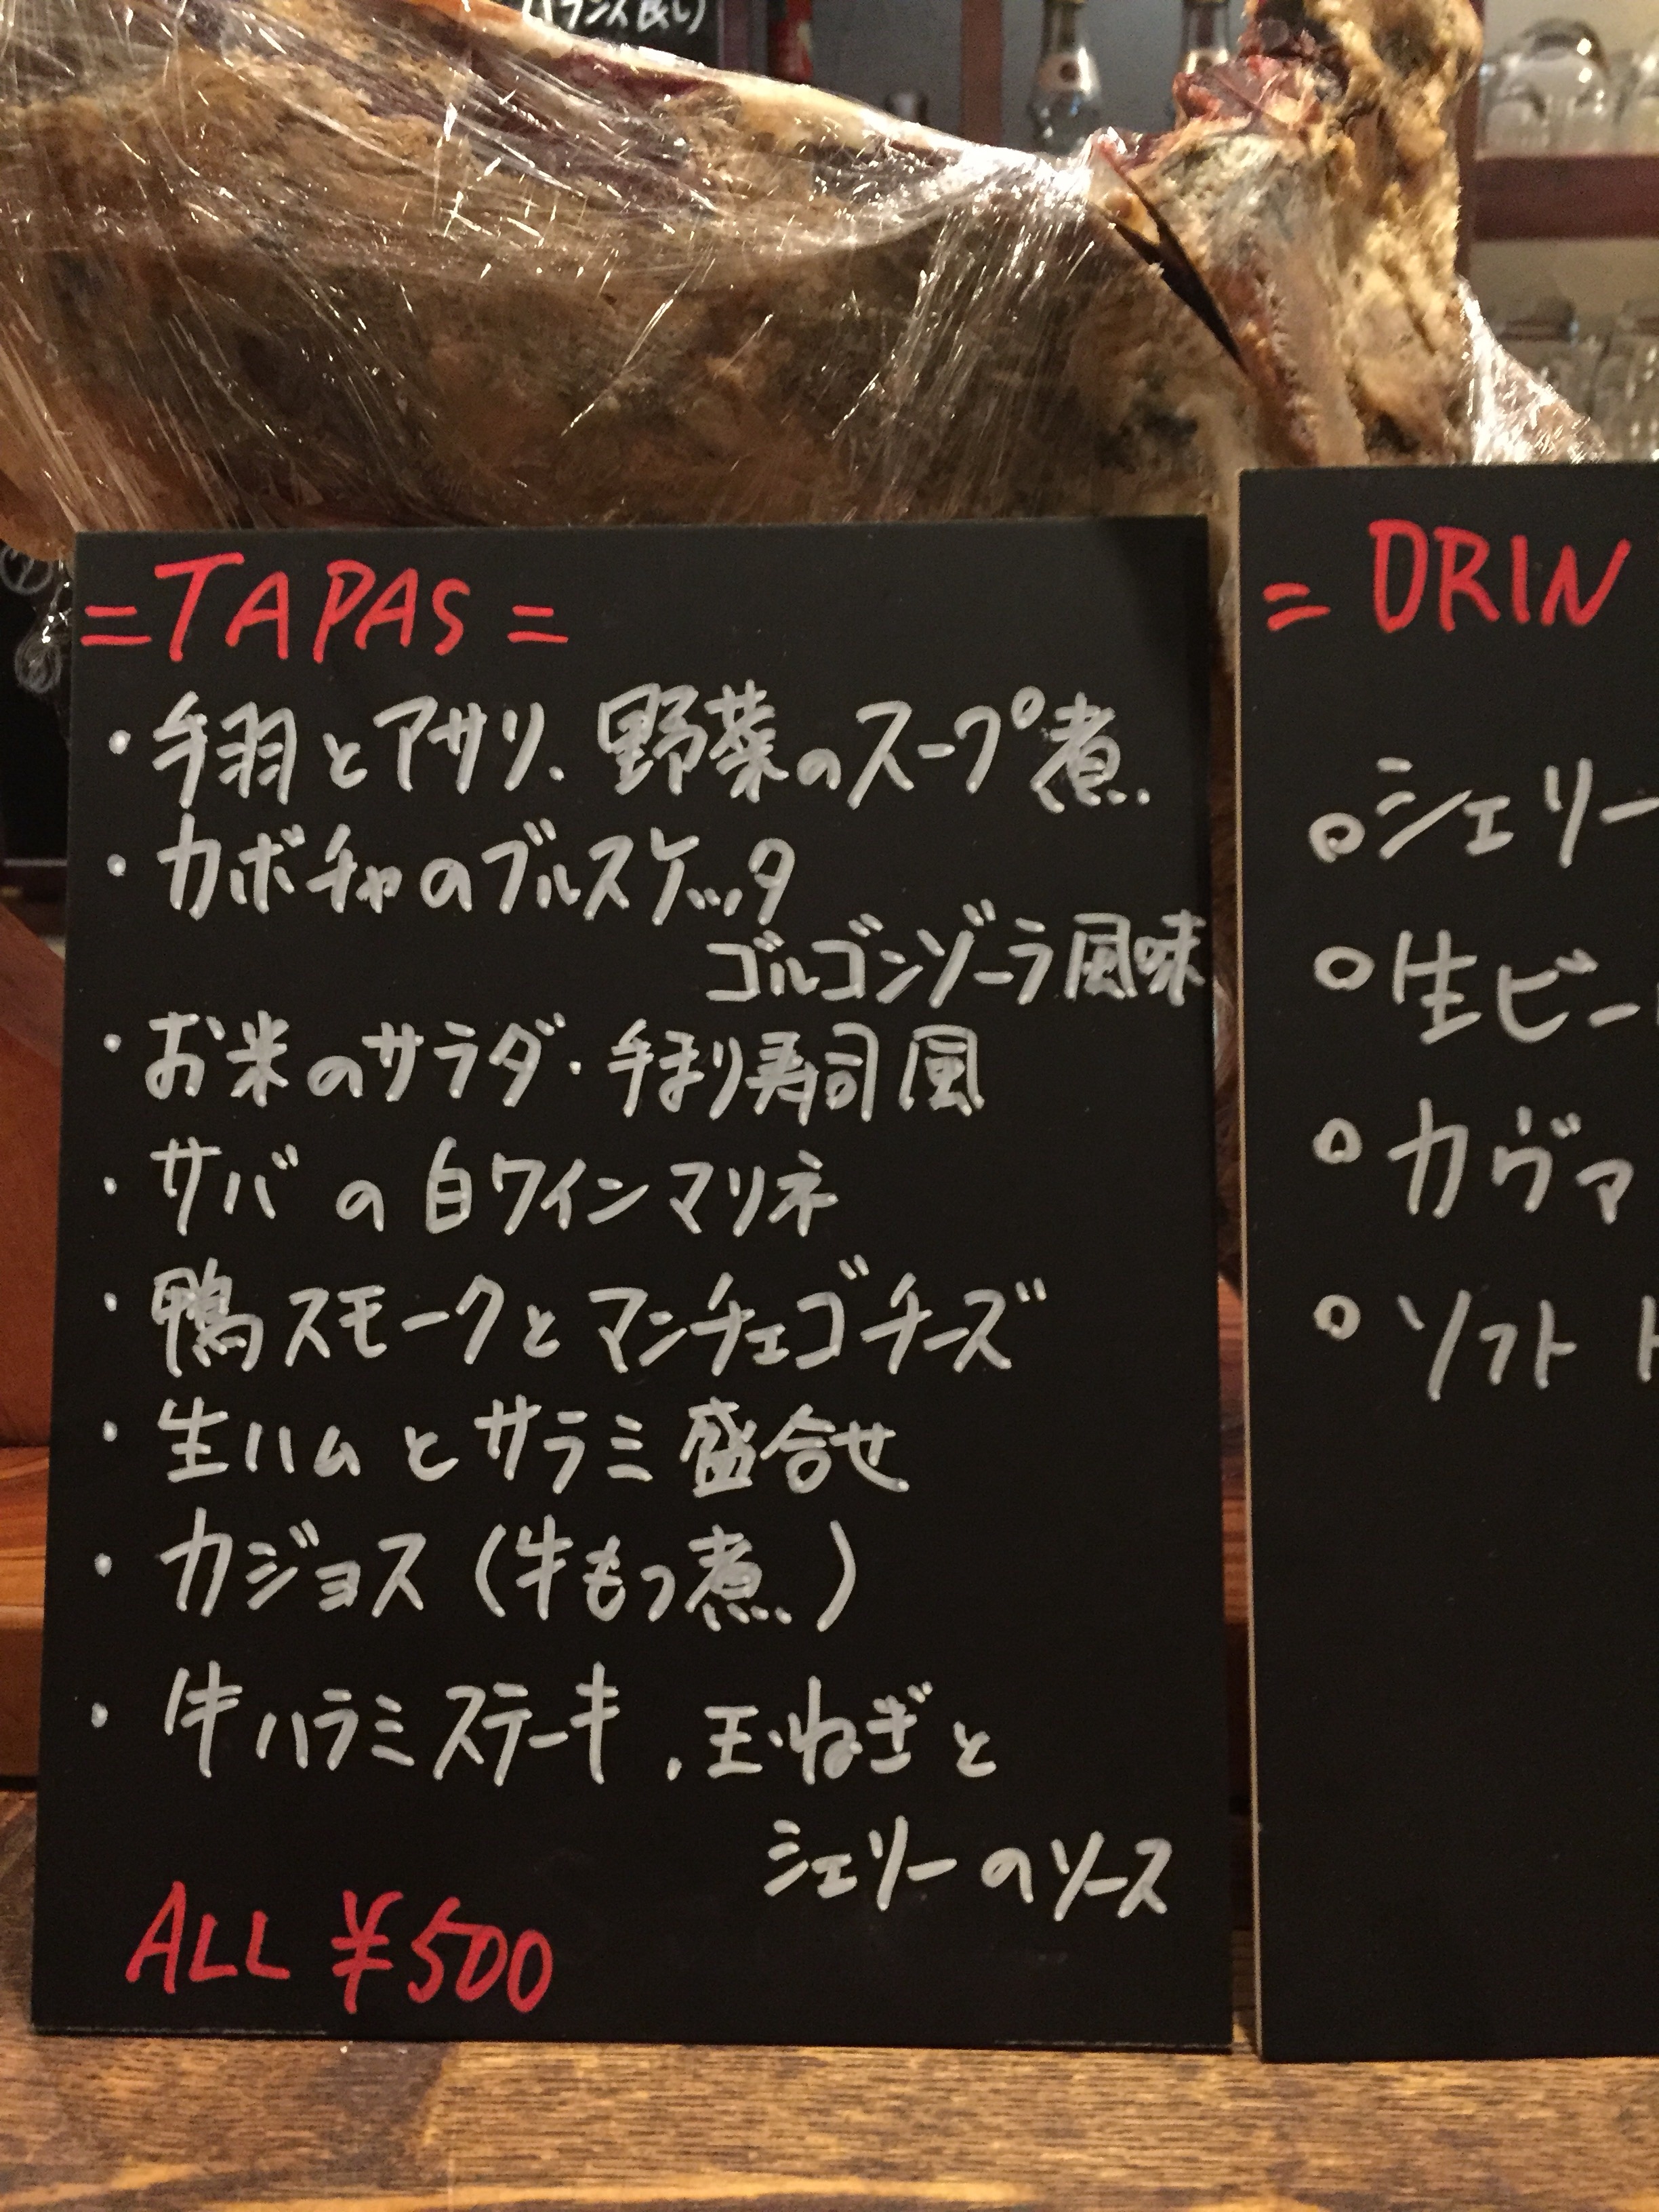 =TAPAS=
・手羽とアサリ、野菜のスープ煮
・カボチャのブルスケッタ
ゴルゴンゾーラ風味
・お米のサラダ・手まり寿司風
・サバの白ワインマリネ
・鴨スモークとマンチェゴチーズ
・生ハムとサラミ盛合せ
・カジョス(牛もつ煮)
・牛ハラミステーキ、玉ねぎと
シェリーのソース
ALL ¥500
= DRIN
○シェリー
○生ビー
○カヴァ
○ソフト